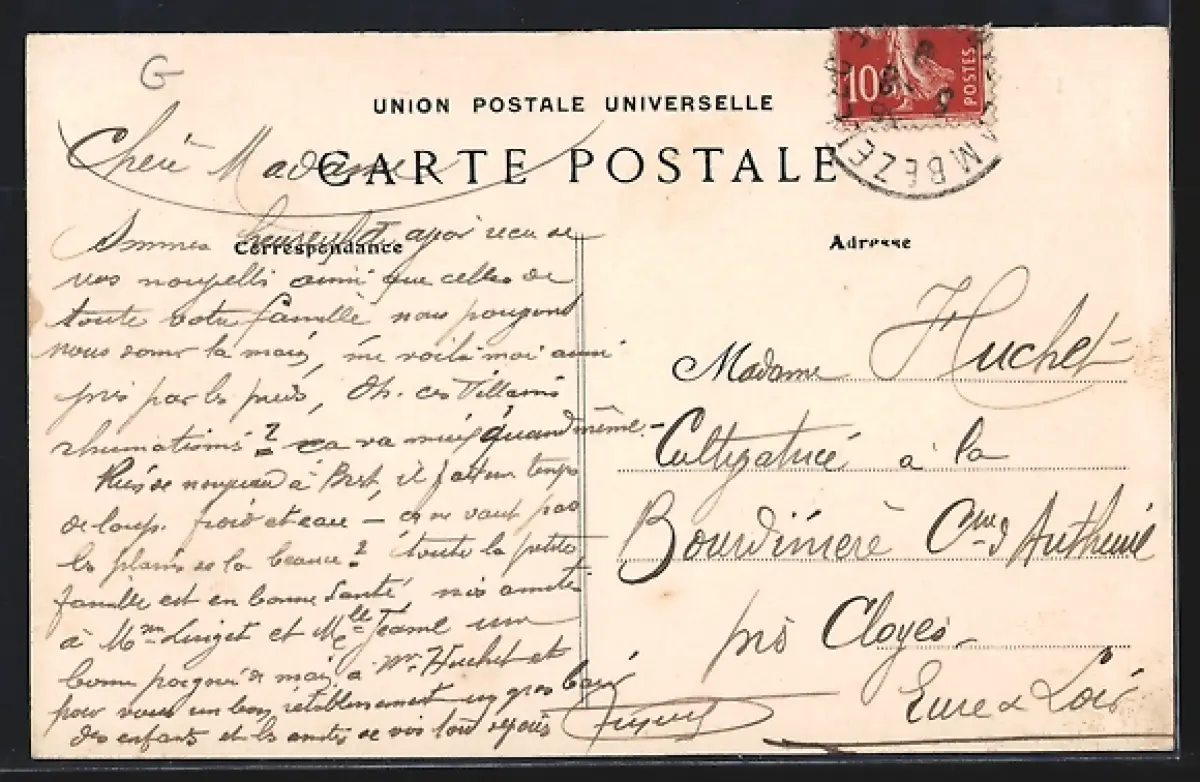 G
UNION POSTALE UNIVERSELLE
10
POSTES
AMBÉZE
CARTE POSTALE
Correspondance
Adresse
Cheré Madame
Sommes heureux d'avoir reçu de
vos nouvelles ainsi que celles de
toute votre famille nous pouvons
nous donner la main, me voilà moi aussi
pris par les pieds, Oh. ces Villains
rhumatismes? ça va mieux quand même.
Ries de nouveau à Brest, il fait un temps
de loup. froid et eau — ça ne vaut pas
les plaines de la beauce? toute la petite
famille est en bonne Santé nos amitiés
à Mme et Melle Jeanne une
bonne poignée de main a Mr Huchet et
pour vous un bon rétablissement un gros baiser
des enfants et les amitiés de vos tout dejoués
Madame Huchet
Cultivatrice à la
Bourdinière Cme d'Autheuil
près Cloyes
Eure & Loir